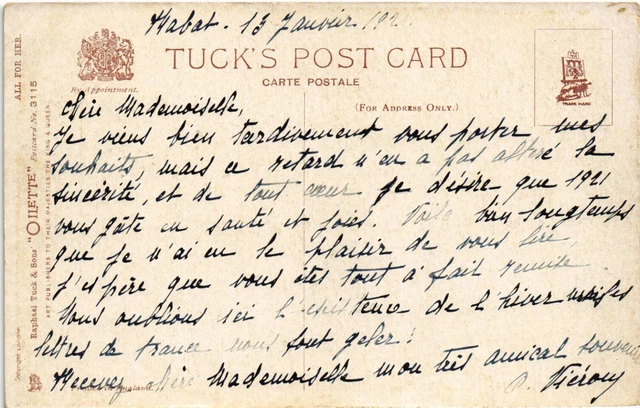 Rabat. 13 Janvier 1921
TUCK'S POST CARD
CARTE POSTALE
By Appointment.
(FOR ADDRESS ONLY.)
TRADE MARK
ALL FOR HER.
Raphael Tuck & Sons' "OILETTE" Postcard No. 3115
ART PUBLISHERS TO THEIR MAJESTIES THE KING & QUEEN.
Chère Mademoiselle,
Je viens bien tardivement vous porter mes
souhaits, mais ce retard n'en a pas altéré la
sincérité, et de tout cœur je désire que 1921
vous gâte en santé et joies. Voilà bien longtemps
que je n'ai eu le plaisir de vous lire,
j'espère que vous êtes tout à fait remise.
Nous oublions ici l'existence de l'hiver
lettres de France nous font geler!
Recevez chère Mademoiselle mon très amical souvenir
England.